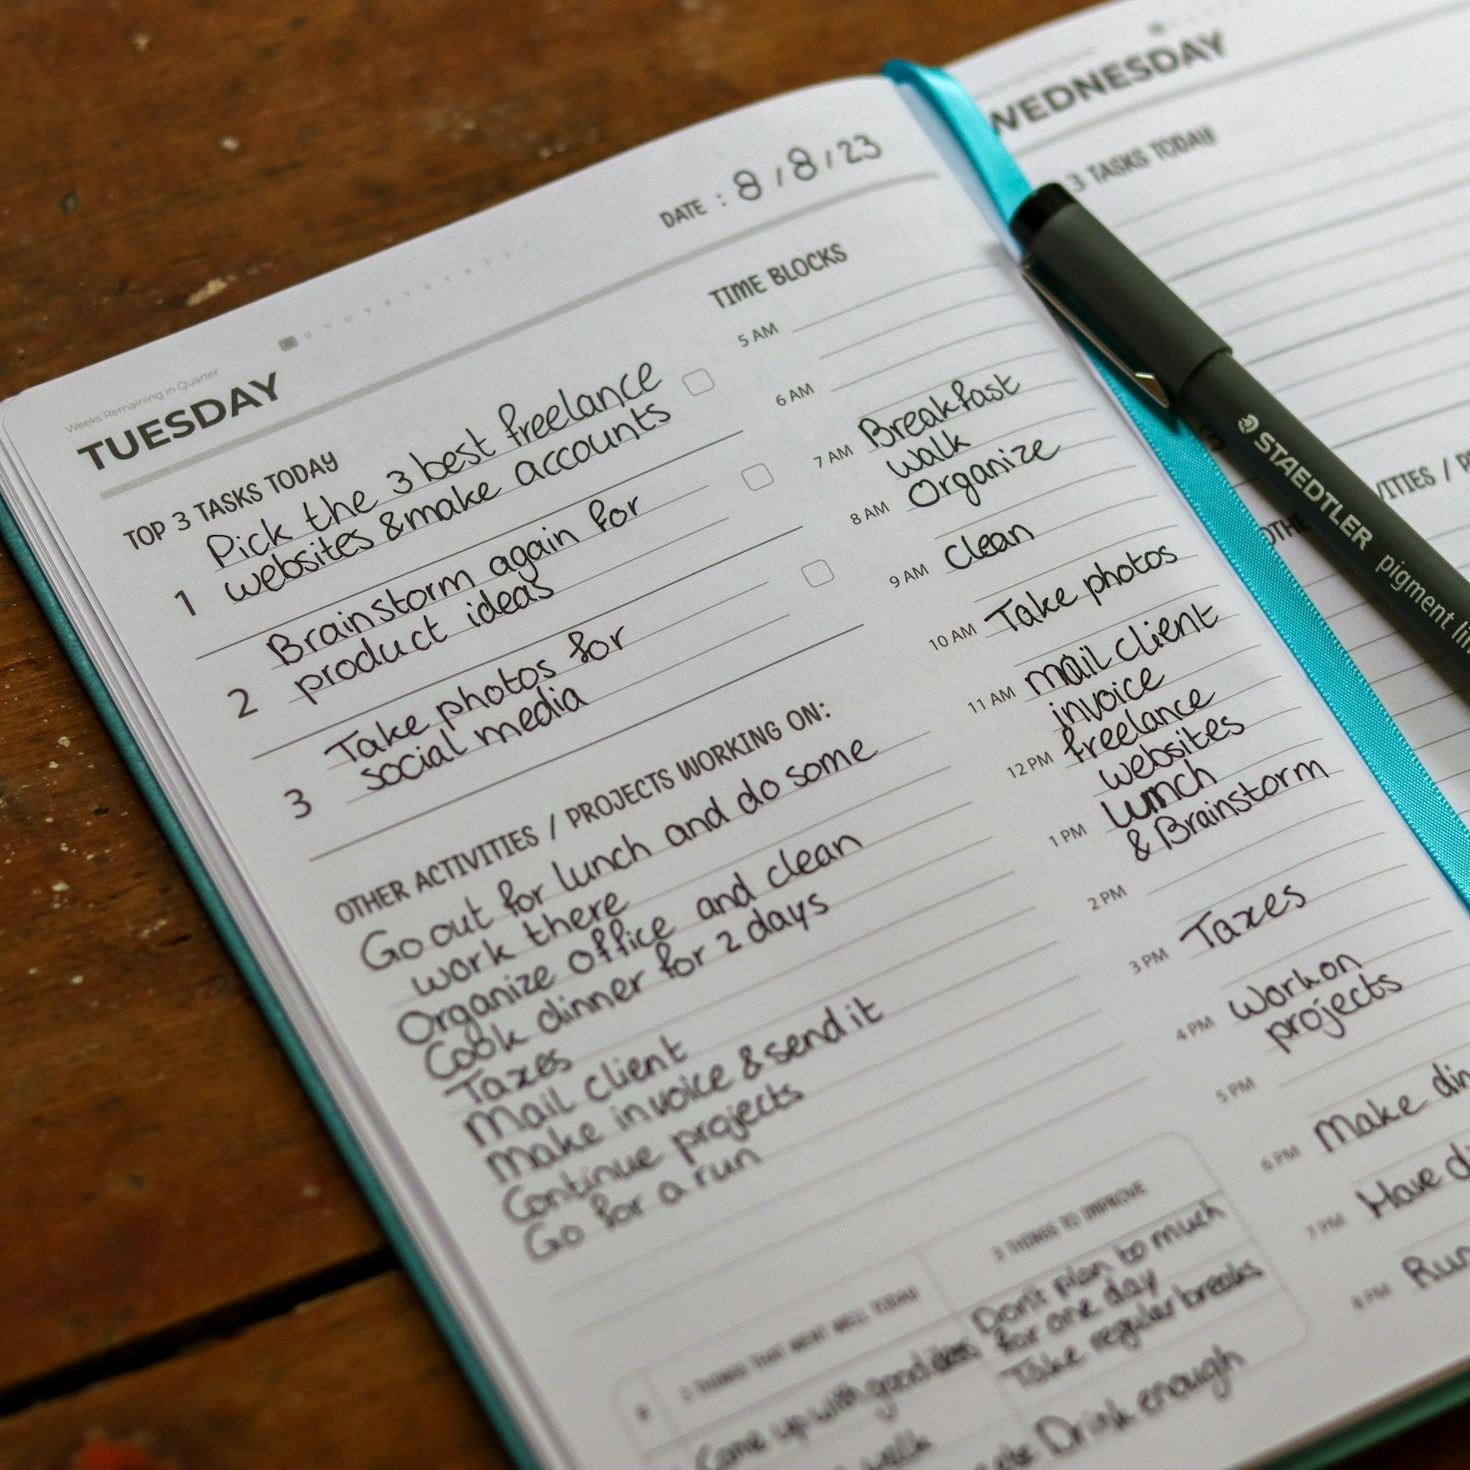 Weeks Remaining in Quarter
TUESDAY
DATE : 8/8/23
TOP 3 TASKS TODAY
1 Pick the 3 best freelance
websites & make accounts
2 Brainstorm again for
product ideas
3 Take photos for
social media
OTHER ACTIVITIES / PROJECTS WORKING ON:
Go out for lunch and do some
work there
Organize office and clean
Cook dinner for 2 days
Taxes
Mail client
Make invoice & send it
Continue projects
Go for a run
TIME BLOCKS
5 AM
6 AM
7 AM Breakfast
Walk
8 AM Organize
9 AM Clean
10 AM Take photos
11 AM mail client
invoice
12 PM freelance
websites
1 PM Lunch
& Brainstorm
2 PM
3 PM Taxes
4 PM Work on
projects
5 PM
6 PM Make din
7 PM Have di
8 PM Run
THINGS THAT WENT WELL TODAY
Come up with good ideas
walk
THINGS TO IMPROVE
Don't plan to much
for one day
Take regular breaks
Drink enough
WEDNESDAY
3 TASKS TODAY
STAEDTLER pigment lin